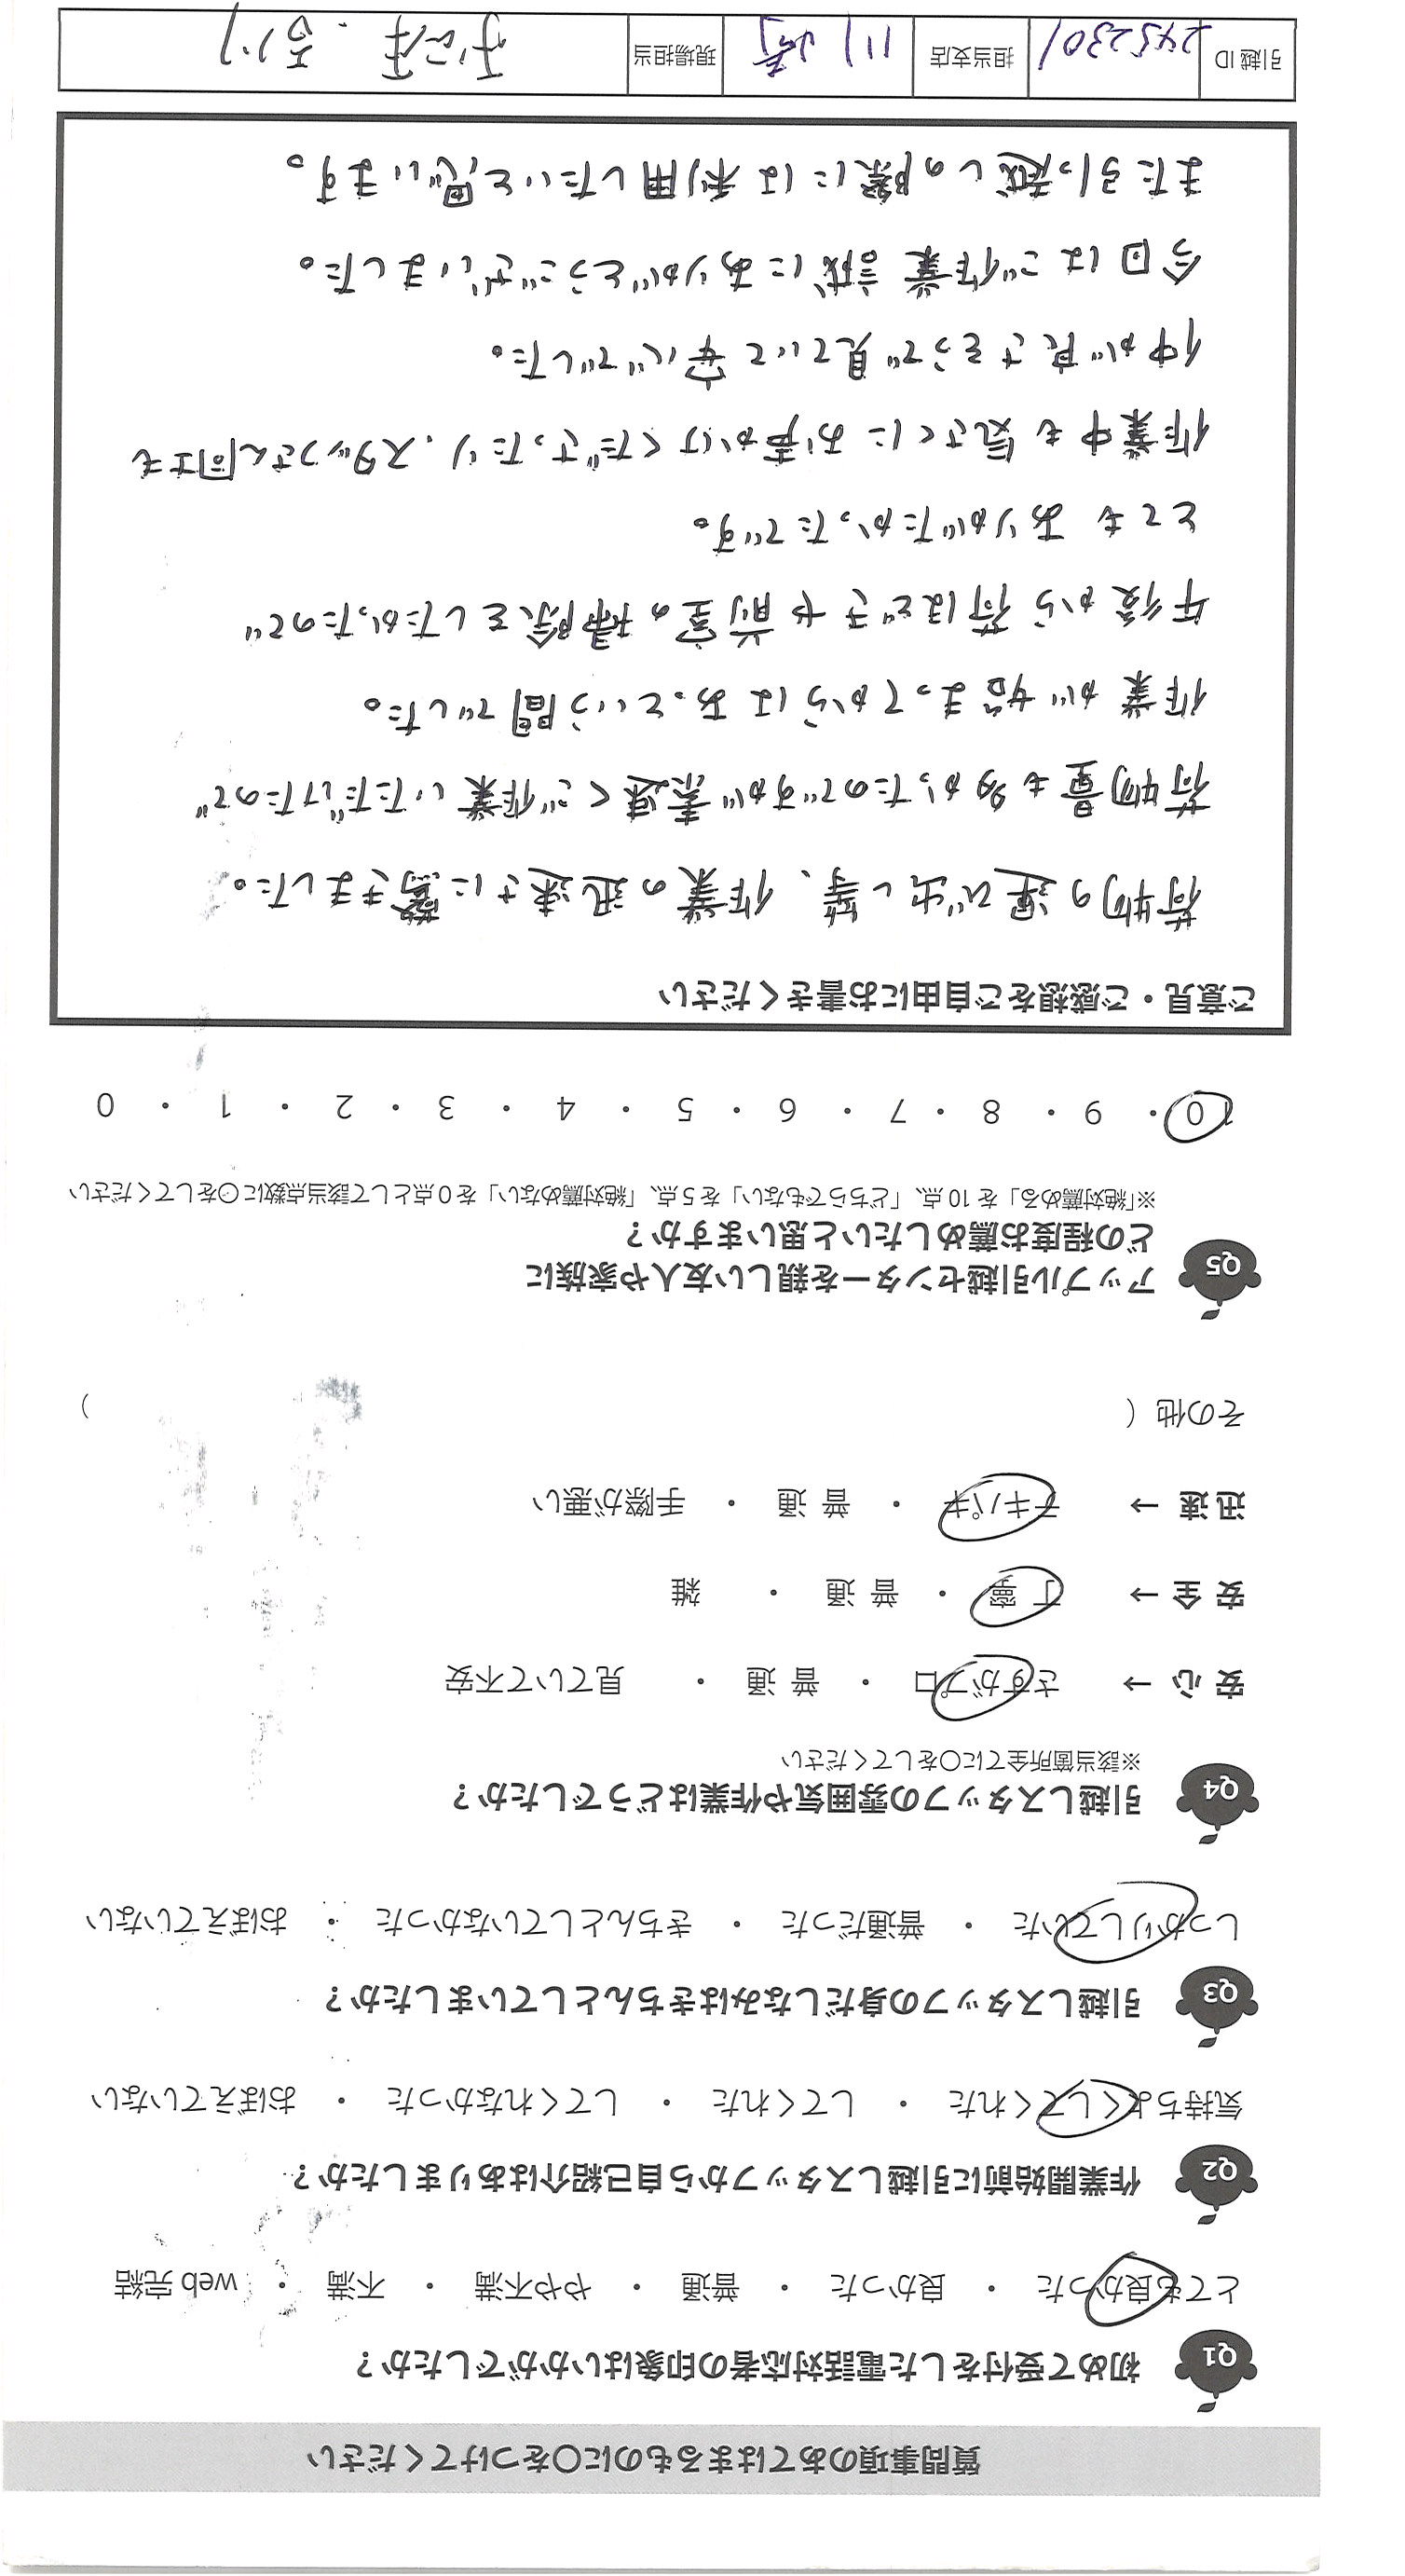 質問事項のあてはまるものに○をつけてください
Q1 初めて受付をした電話対応者の印象はいかがでしたか？
とても良かった ・ 良かった ・ 普通 ・ やや不満 ・ 不満 ・ web 完結
Q2 作業開始前に引越しスタッフから自己紹介はありましたか？
気持ちよくしてくれた ・ してくれた ・ してくれなかった ・ おぼえていない
Q3 引越しスタッフの身だしなみはきちんとしていましたか？
しっかりしていた ・ 普通だった ・ きちんとしていなかった ・ おぼえていない
Q4 引越しスタッフの雰囲気や作業はどうでしたか？
※該当箇所全てに○をしてください
安 心 → さすがプロ ・ 普 通 ・ 見ていて不安
安 全 → 丁 寧 ・ 普 通 ・ 雑
迅 速 → テキパキ ・ 普 通 ・ 手際が悪い
その他（ ）
Q5 アップル引越センターを親しい友人や家族に
どの程度お薦めしたいと思いますか？
※「絶対薦める」を 10 点、「どちらでもない」を 5 点、「絶対薦めない」を 0 点として該当点数に○をしてください
10 ・ 9 ・ 8 ・ 7 ・ 6 ・ 5 ・ 4 ・ 3 ・ 2 ・ 1 ・ 0
ご意見・ご感想をご自由にお書きください
荷物の運び出し等、作業の迅速さに驚きました。
荷物量も多かったのですが素速くご作業いただけたので
作業が始まってからはあっという間でした。
午後から荷ほどきや前室の掃除をしたかったので
とてもありがたかったです。
作業中も気さくにお声がけくださったり、スタッフさん同士も
仲が良さそうで見ていて安心でした。
今回はご作業誠にありがとうございました。
また引っ越しの際には利用したいと思います。
引越 ID 2452301 担当支店 川崎 現場担当